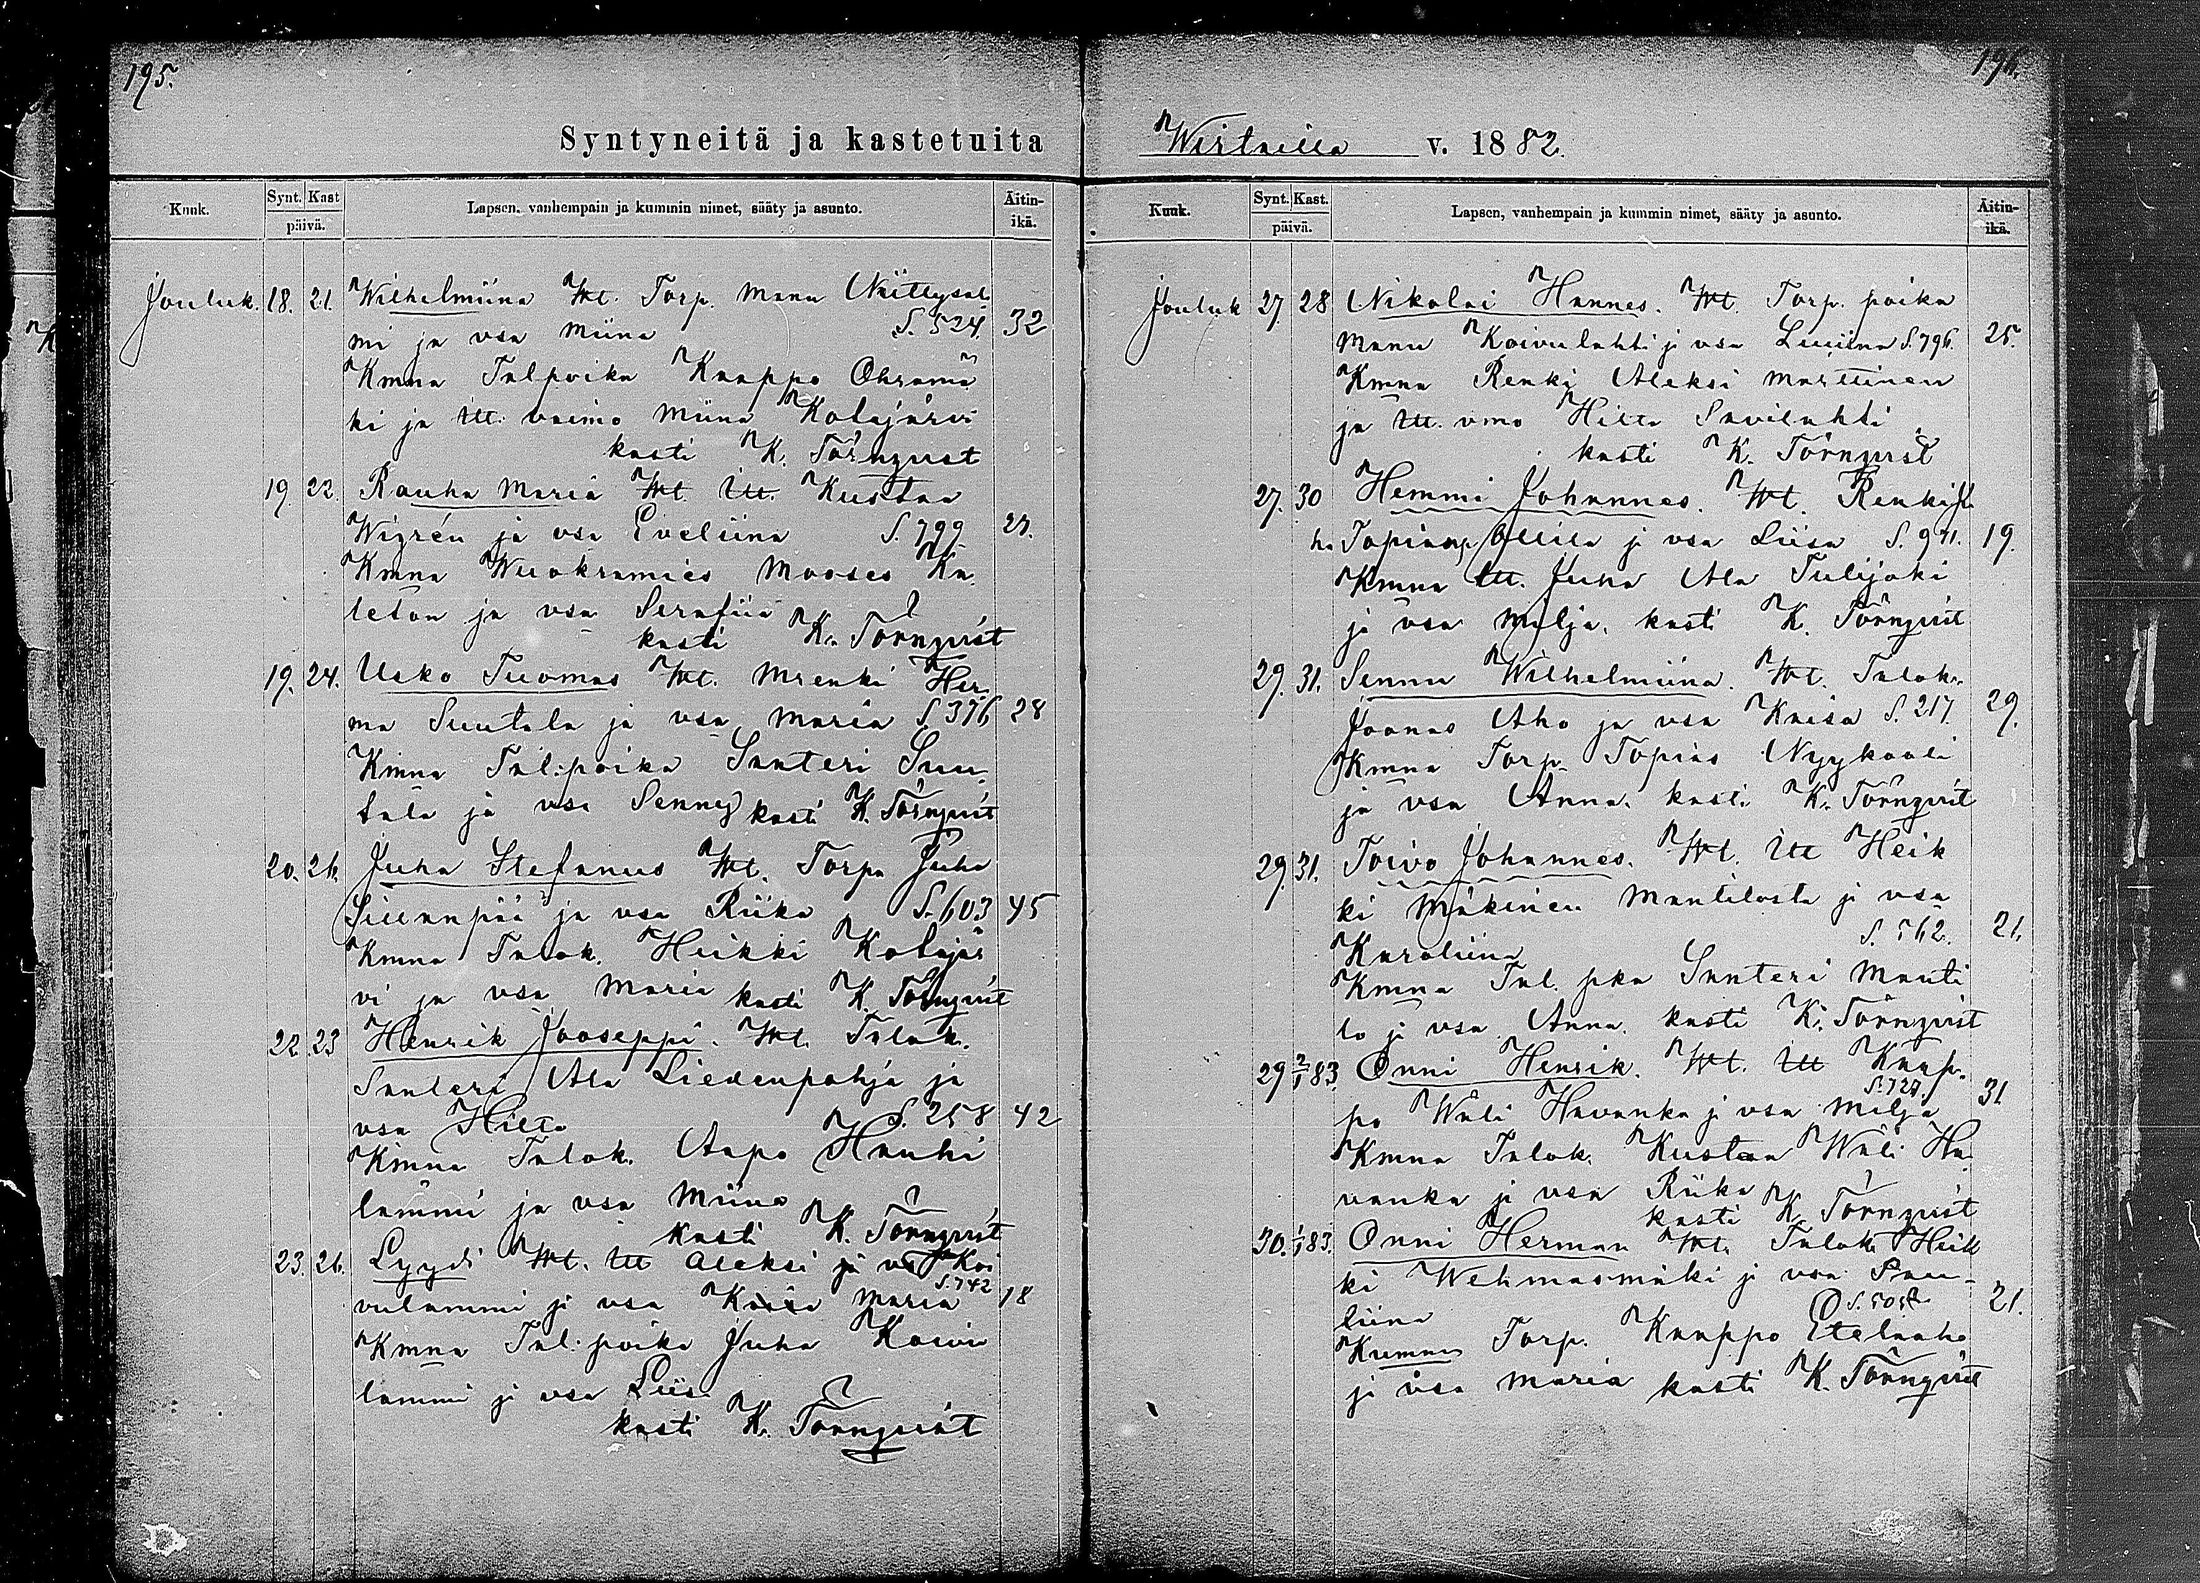 195.
Syntyneitä ja kastetuita
Kuuk. Synt. Kast päivä. Lapsen, vanhempain ja kummin nimet, sääty ja asunto. Äitin-ikä.
Jouluk. 18. 21. Wilhelmiina Vht. Torp. Manu Niittysal
mi ja vsa Miina S. 524. 32
Kmna Talpoika Kaappo Ohramä
ki ja Itt. vaimo Miina Kotajärvi
kasti K. Törnqvist
19. 22. Rauha Maria Vht. Itt. Kustaa
Wigrén ja vsa Eveliina S. 799 27.
Kmna Wuokramies Mooses Ka
leton ja vsa Serafiia
kasti K. Törnqvist
19. 24. Usko Tuomas Vht. Mrenki Her
ma Suutala ja vsa Maria S. 376 28
Kmna Tal. poika Santeri Suu
tala ja vsa Senny kasti K. Törnqvist
20. 26. Juha Stefanus Vht. Torp. Juha
Siiranpää ja vsa Riika S. 603 45
Kmna Talok. Heikki Kotajär
vi ja vsa Maria kasti K. Törnqvist
22. 23 Henrik Jooseppi. Vht. Talok.
Santeri Ala Liedenpohja ja
vsa Hilta S. 258 42
Kmna Talok. Aapo Hauhi
lammi ja vsa Miina
kasti K. Törnqvist
23. 26. Lyydi Vht. Itt Aleksi Koi
vulammi ja vsa Kaisa Maria S. 742 18
Kmna Tal. poika Juha Koivu
lammi ja vsa Liisa
kasti K. Törnqvist
196.
Wirtailla v. 1882.
Kuuk. Synt. Kast. päivä. Lapsen, vanhempain ja kummin nimet, sääty ja asunto. Äitin-ikä.
Jouluk 27. 28 Nikolai Hannes. Vht. Torp. poika
Manu Koivulahti ja vsa Luiina S. 796. 25.
Kmna Renki Aleksi Marttinen
ja Itt. vmo Hilta Savilahti
kasti K. Törnqvist
27. 30 Hemmi Johannes. Vht. Renki
Topias Ollila ja vsa Liisa S. 971. 19.
Kmna Itt. Juha Ala Tulijoki
ja vsa Milja. kasti K. Törnqvist
29. 31. Sennu Wilhelmiina. Vht. Talok.
Joonas Aho ja vsa Kaisa S. 217. 29.
Kmna Torp. Topias Nyykaali
ja vsa Anna. kasti K. Törnqvist
29. 31. Toivo Johannes. Vht. Itt Heik
ki Mäkinen Mantilasta ja vsa
Karoliina S. 562. 21.
Kmna Tal. pka Santeri Manti
la ja vsa Anna. kasti K. Törnqvist
29 2/1 83. Onni Henrik. Vht. Itt Kaap-
po Wäli Havanka ja vsa Milja S. 727. 31
Kmna Talok. Kustaa Wäli Ha
vanka ja vsa Riika
kasti K. Törnqvist
30. 1/1 83. Onni Herman Vht. Talok. Heik
ki Wehmasmäki ja vsa Pau-
liina 21.
Kumma Torp. Kaappo Etelaaho
ja vsa Maria kasti K. Törnqvist